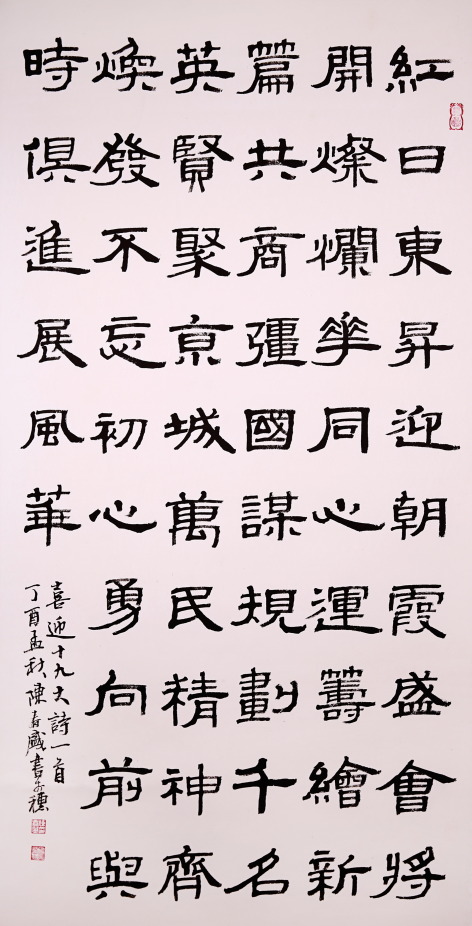 紅日東昇迎朝霞盛會將
開燦爛華同心運籌繪新
篇共商彊國謀規劃千名
英賢聚京城萬民精神齊
煥發不忘初心勇向前與
時俱進展風華
喜迎十九大詩一首
丁酉孟秋陳春盛書於穗